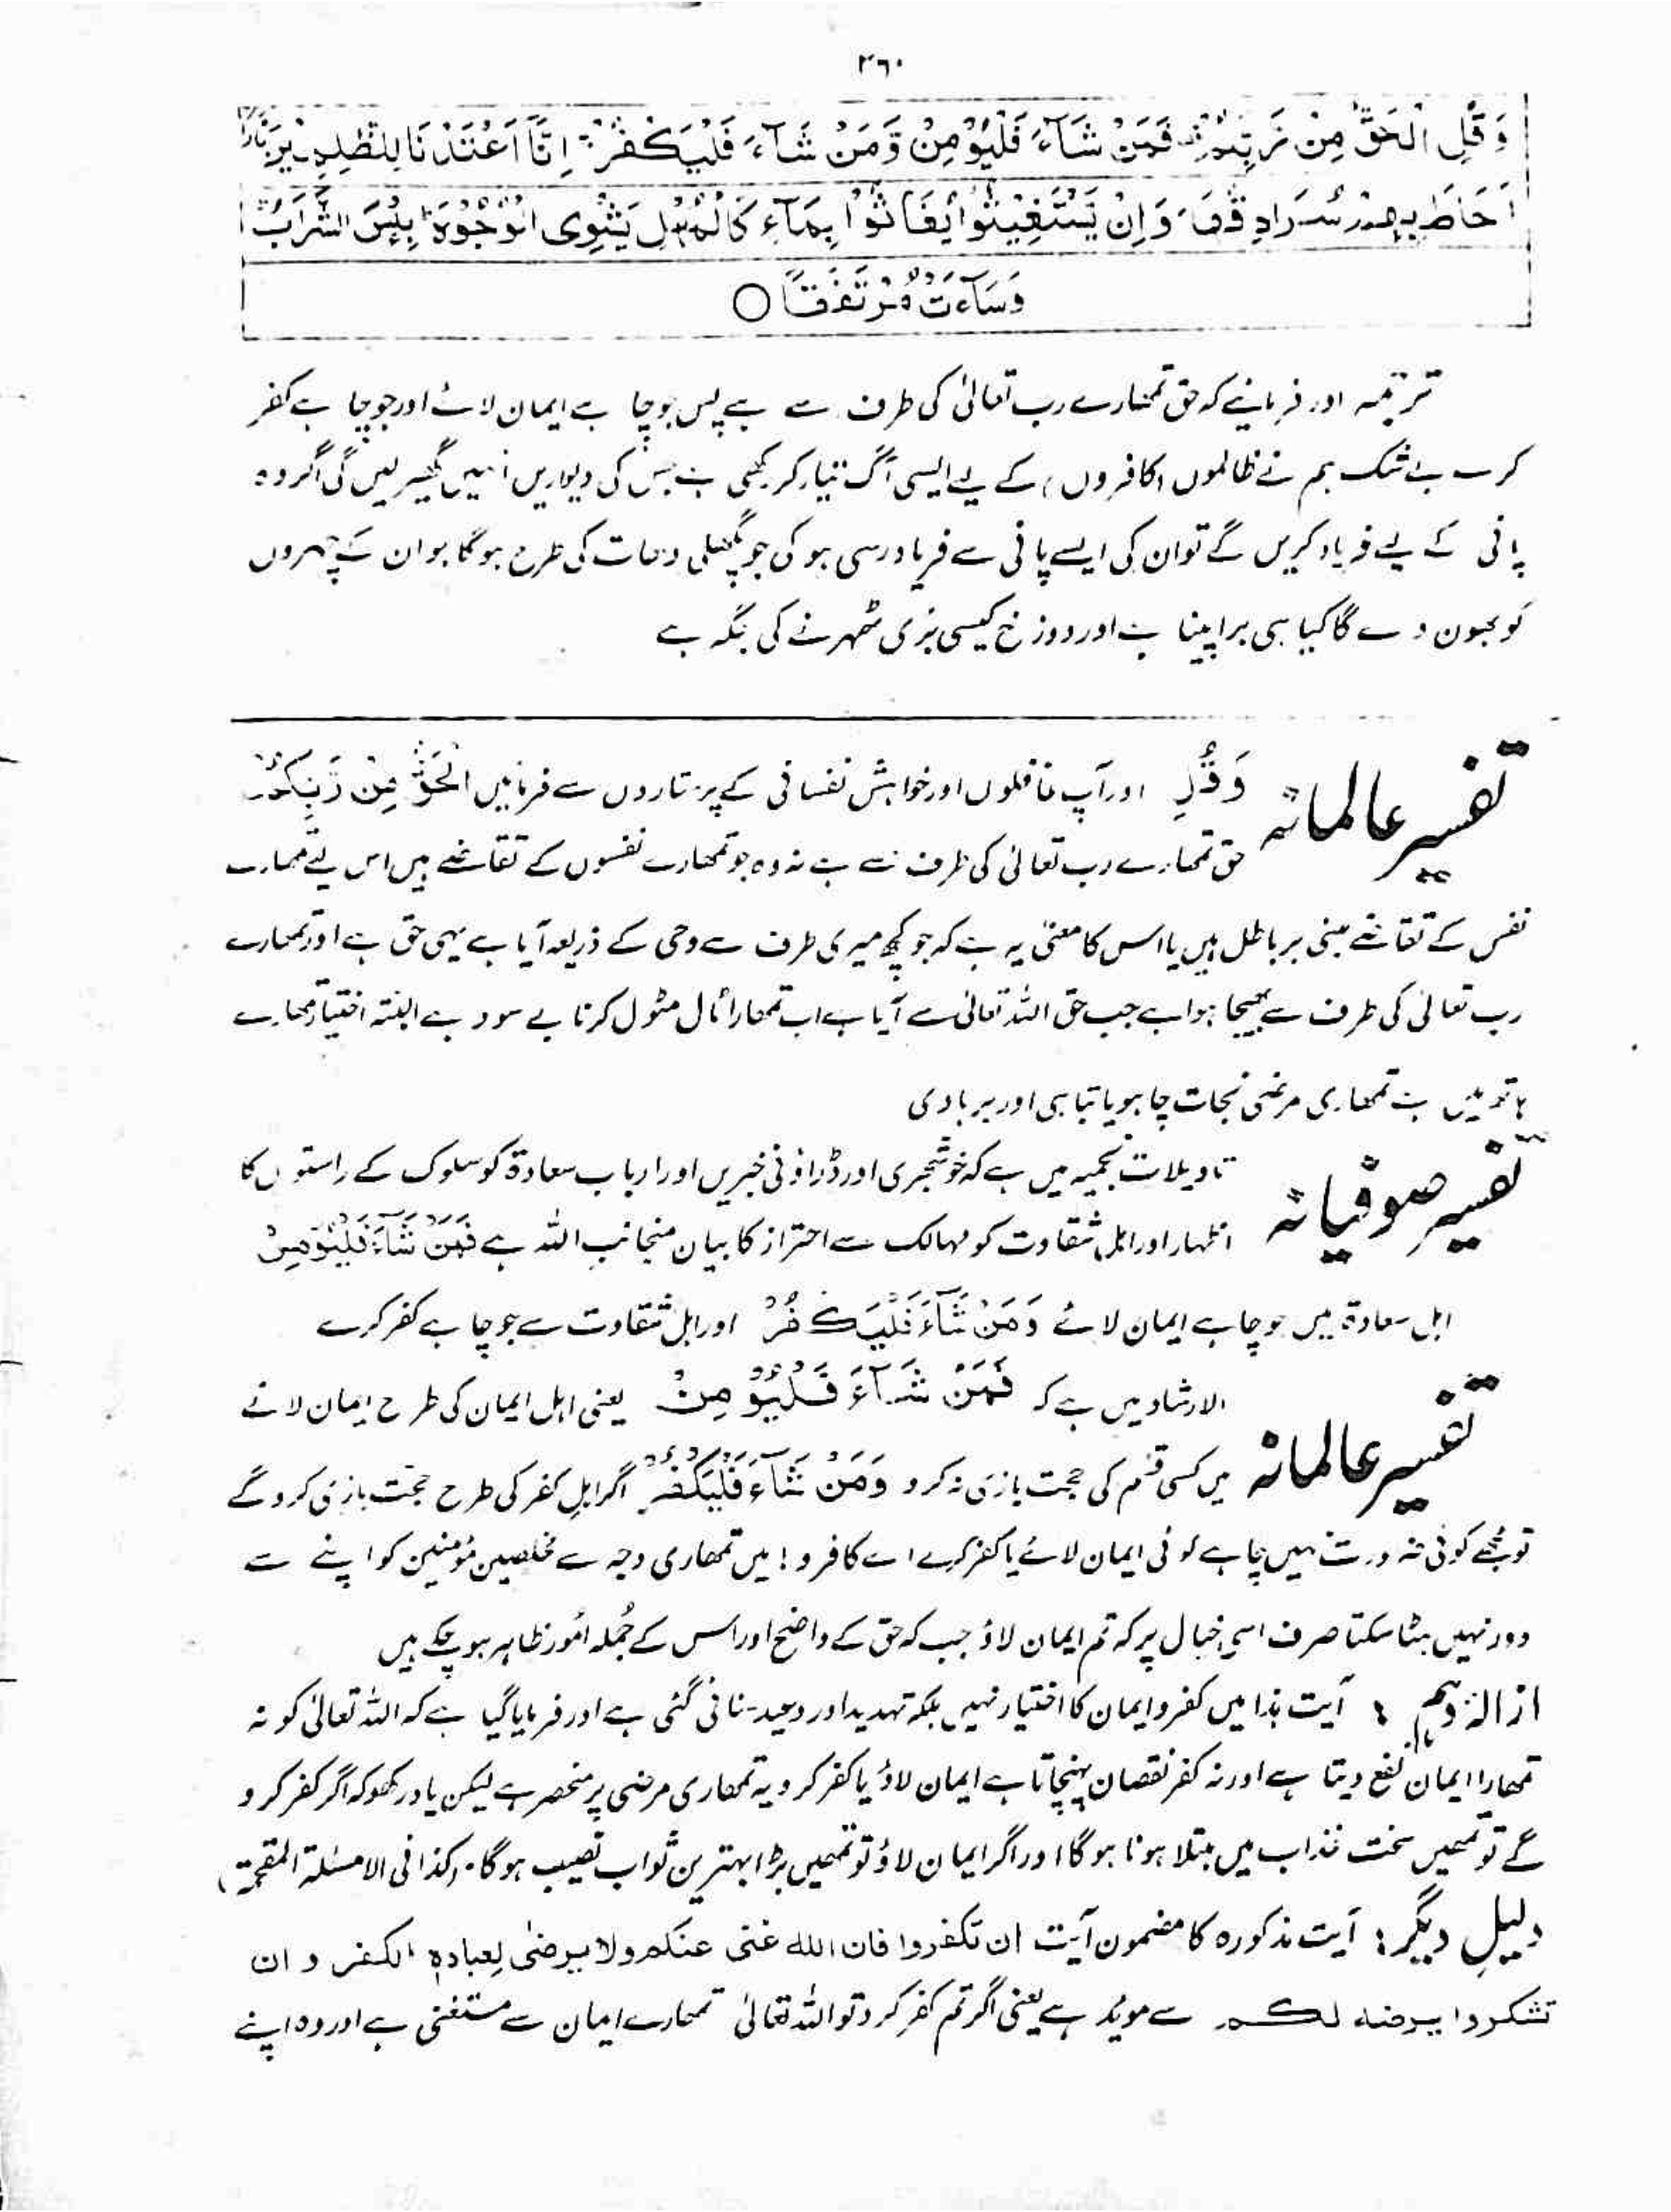 ۳۶۰
وَقُلِ الْحَقُّ مِنْ رَّبِّكُمْ فَمَنْ شَآءَ فَلْيُؤْمِنْ وَّمَنْ شَآءَ فَلْيَكْفُرْ اِنَّآ اَعْتَدْنَا لِلظّٰلِمِيْنَ نَارًا
اَحَاطَ بِهِمْ سُرَادِقُهَا وَاِنْ يَّسْتَغِيْثُوْا يُغَاثُوْا بِمَآءٍ كَالْمُهْلِ يَشْوِى الْوُجُوْهَ بِئْسَ الشَّرَابُ
وَسَآءَتْ مُرْتَفَقًا ○
ترجمہ اور فرمایئے کہ حق تمھارے رب تعالیٰ کی طرف سے ہے پس جو چاہے ایمان لائے اور جو چاہے کفر
کرے بے شک ہم نے ظالموں (کافروں) کے لیے ایسی آگ تیار کر رکھی ہے جس کی دیواریں انہیں گھیر لیں گی اگر وہ
پانی کے لیے فریاد کریں گے تو ان کی ایسے پانی سے فریاد رسی ہو گی جو پگھلی دھات کی طرح ہو گا جو ان کے چہروں
کو بھون دے گا کیا ہی برا پینا ہے اور دوزخ کیسی بُری ٹھہرنے کی جگہ ہے
تفسیر عالمانہ وَقُلِ اور آپ غافلوں اور خواہش نفسانی کے پرستاروں سے فرمائیں الْحَقُّ مِنْ رَّبِّكُمْ
حق تمھارے رب تعالیٰ کی طرف سے ہے نہ وہ جو تمھارے نفسوں کے تقاضے ہیں اس لیے تمھارے
نفس کے تقاضے مبنی بر باطل ہیں یا اس کا معنیٰ یہ ہے کہ جو کچھ میری طرف سے وحی کے ذریعہ آیا ہے یہی حق ہے اور تمھارے
رب تعالیٰ کی طرف سے بھیجا ہوا ہے جب حق اللہ تعالیٰ سے آیا ہے اب تمھارا ٹال مٹول کرنا بے سود ہے البتہ اختیار تمھارے
ہاتھ میں ہے تمھاری مرضی نجات چاہو یا تباہی اور بربادی
تفسیر صوفیانہ تاویلات نجمیہ میں ہے کہ خوشخبری اور ڈراؤنی خبریں اور ارباب سعادۃ کو سلوک کے راستوں کا
اظہار اور اہل شقاوت کو مہالک سے احتراز کا بیان منجانب اللہ ہے فَمَنْ شَآءَ فَلْيُؤْمِنْ
اہل سعادۃ میں جو چاہے ایمان لائے وَمَنْ شَآءَ فَلْيَكْفُرْ اور اہل شقاوت سے جو چاہے کفر کرے
تفسیر عالمانہ الارشاد میں ہے کہ فَمَنْ شَآءَ فَلْيُؤْمِنْ یعنی اہل ایمان کی طرح ایمان لانے
میں کسی قسم کی حجت بازی نہ کرو وَمَنْ شَآءَ فَلْيَكْفُرْ اگر اہلِ کفر کی طرح حجت بازی کرو گے
تو مجھے کوئی ضرورت نہیں چاہے کوئی ایمان لائے یا کفر کرے اے کافرو! میں تمھاری وجہ سے مخلصین مؤمنین کو اپنے سے
دور نہیں ہٹا سکتا صرف اسی خیال پر کہ تم ایمان لاؤ جب کہ حق کے واضح اور اس کے جُملہ امُور ظاہر ہو چکے ہیں
ازالۂ وہم : آیت ہذا میں کفر و ایمان کا اختیار نہیں بلکہ تہدید اور وعید سنائی گئی ہے اور فرمایا گیا ہے کہ اللہ تعالیٰ کو نہ
تمھارا ایمان نفع دیتا ہے اور نہ کفر نقصان پہنچاتا ہے ایمان لاؤ یا کفر کرو یہ تمھاری مرضی پر منحصر ہے لیکن یاد رکھو کہ اگر کفر کرو
گے تو تمھیں سخت عذاب میں مبتلا ہونا ہو گا اور اگر ایمان لاؤ تو تمھیں بڑا بہترین ثواب نصیب ہو گا۔ (کذا فی الامسئلۃ المقحمۃ)
دلیل دیگر : آیت مذکورہ کا مضمون آیت ان تکفروا فان اللہ غنی عنکم ولا یرضیٰ لعبادہٖ الکفر و ان
تشکروا یرضہ لکم سے موید ہے یعنی اگر تم کفر کرو تو اللہ تعالیٰ تمھارے ایمان سے مستغنی ہے اور وہ اپنے